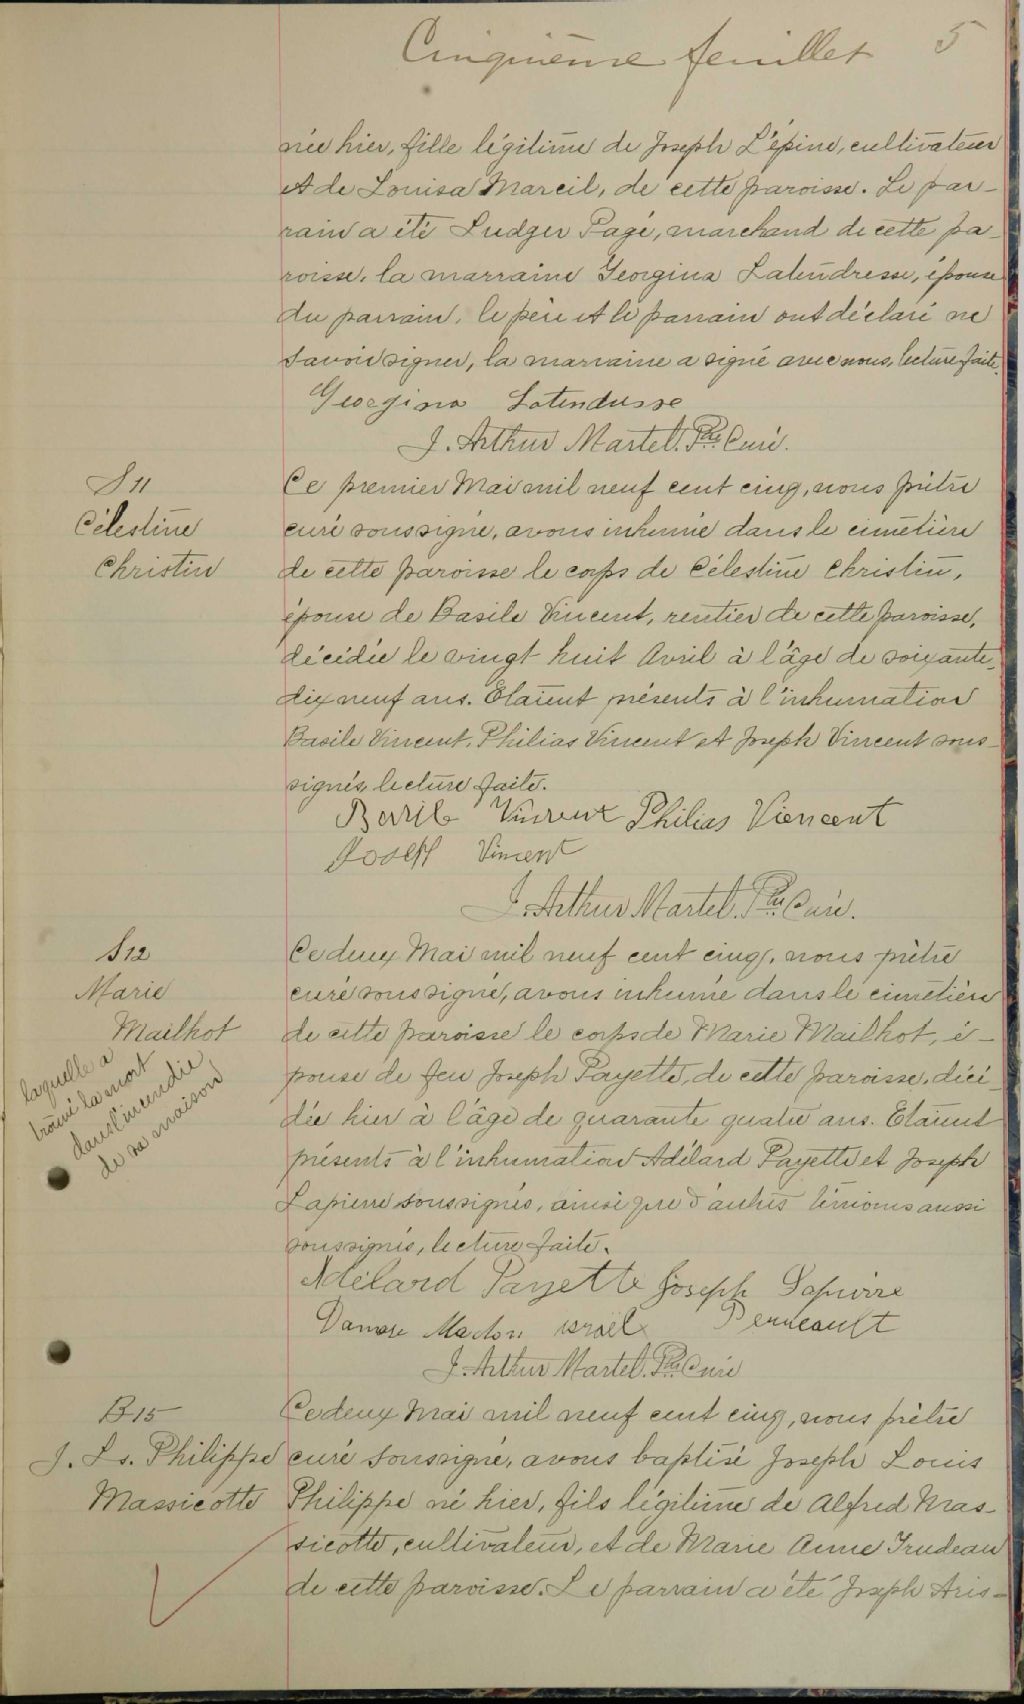 Cinquième feuillet 5
née hier, fille légitime de Joseph L'épine, cultivateur
et de Louisa Mareil, de cette paroisse. Le par-
rain a été Ludger Pagé, marchand de cette pa-
roisse, la marraine Georgina Latendresse, épouse
du parrain, le père et le parrain ont déclaré ne
savoir signer, la marraine a signé avec nous, lecture faite.
Georgina Latendresse
J. Arthur Martel. Ptre Curé.
S 11
Célestine
Christin
Ce premier Mai mil neuf cent cinq, nous prêtre
curé soussigné, avons inhumé dans le cimetière
de cette paroisse le corps de Célestine Christin,
épouse de Basile Vincent, rentier de cette paroisse,
décédée le vingt huit Avril à l'âge de soixante-
dix neuf ans. Etaient présents à l'inhumation
Basile Vincent, Philias Vincent et Joseph Vincent sous-
signés, lecture faite.
Basile Vincent Philias Viencent
Joseph Vincent
J. Arthur Martel. Ptre Curé.
S 12
Marie
Mailhot
laquelle a
trouvé la mort
dans l'incendie
de sa maison
Ce deux Mai mil neuf cent cinq, nous prêtre
curé soussigné, avons inhumé dans le cimetière
de cette paroisse le corps de Marie Mailhot, é-
pouse de feu Joseph Payette, de cette paroisse, décé-
dée hier à l'âge de quarante quatre ans. Etaient
présents à l'inhumation Adélard Payette et Joseph
Lapierre soussignés, ainsi que d'autres témoins aussi
soussignés, lecture faite.
Adélard Payette Joseph Lapierre
Damase israël Perreault
J. Arthur Martel. Ptre Curé
B 15
J. Ls. Philippe
Massicotte
Ce deux Mai mil neuf cent cinq, nous prêtre
curé soussigné, avons baptisé Joseph Louis
Philippe né hier, fils légitime de Alfred Mas-
sicotte, cultivateur, et de Marie Anne Trudeau
de cette paroisse. Le parrain a été Joseph Aris-